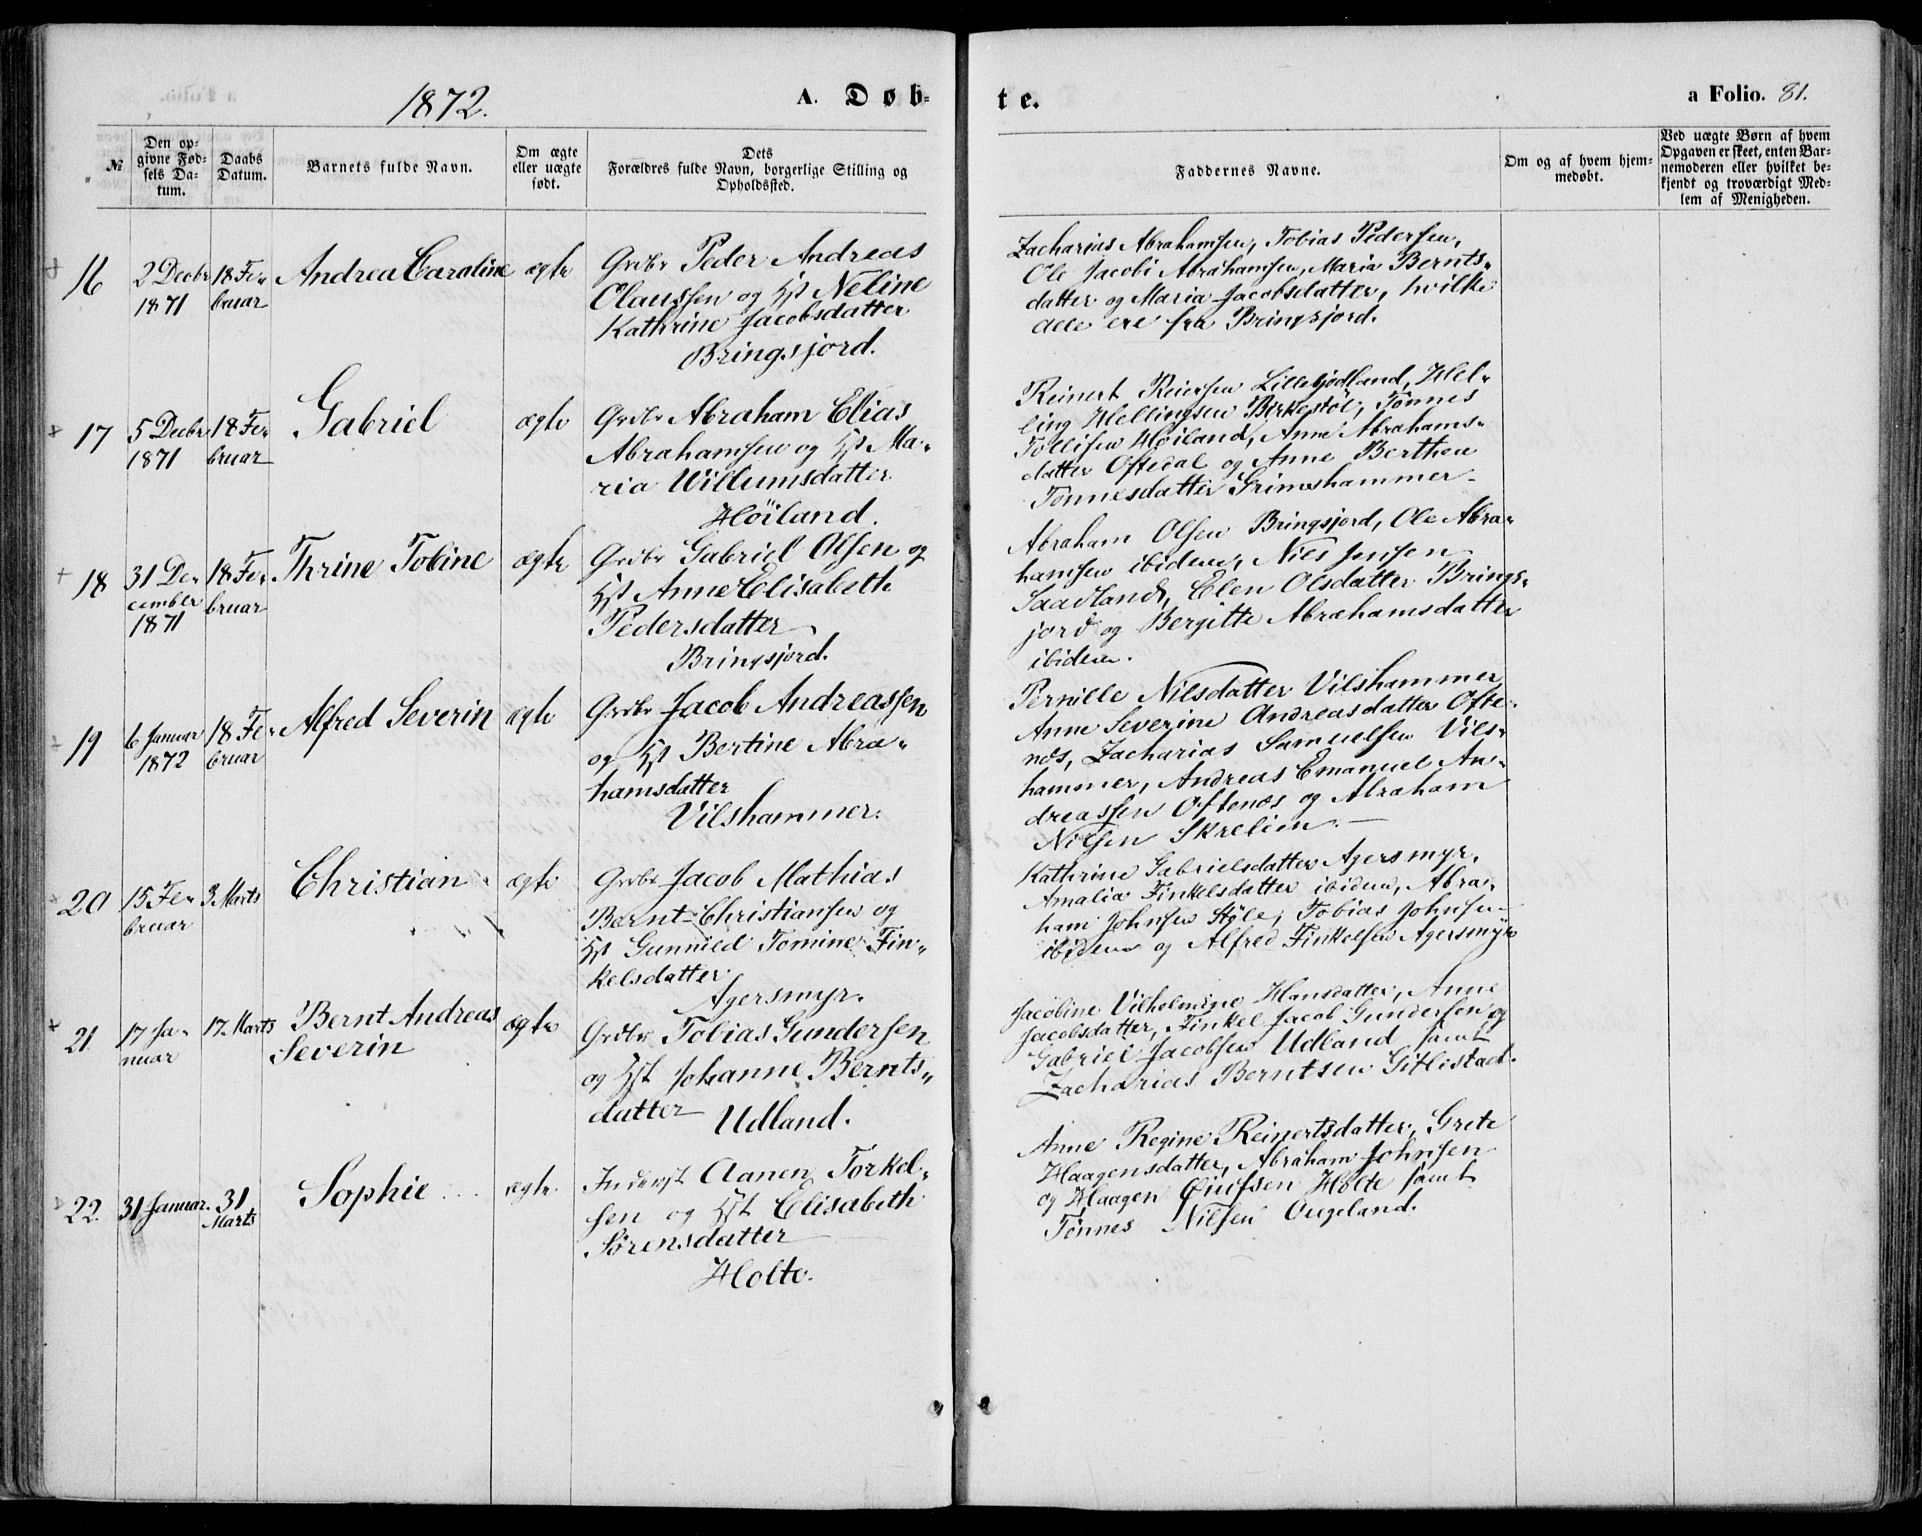 1872.
A. Døb-
te.
a Folio. 81.
№
Den op-
givne Fød-
sels Da-
tum.
Daabs
Datum.
Barnets fulde Navn.
Om ægte
eller uægte
født.
Dets
Forældres fulde Navn, borgerlige Stilling og
Opholdssted.
Faddernes Navne.
Om og af hvem hjem-
medøbt.
Ved uægte Børn af hvem
Opgaven er skeet, enten Bar-
nemoderen eller hvilket be-
kjendt og troværdigt Med-
lem af Menigheden.
16
2 Decbr
1871
18 Fe-
bruar
Andrea Caroline
ægte
Grdbr Peder Andreas
Olaussen og Hst Neline
Kathrine Jacobsdatter
Bringsjord.
Zacharias Abrahamsen, Tobias Pedersen,
Ole Jacobi Abrahamsen, Maria Bernts-
datter og Maria Jacobsdatter, hvilke
alle ere fra Bringsjord.
17
5 Decbr
1871
18 Fe-
bruar
Gabriel
ægte
Grdbr Abraham Elias
Abrahamsen og Hst Ma-
ria Willumsdatter
Höiland.
Reinert Reiersen Lillebjodland, Hel-
ling Hellingsen Birkestöl, Tönnes
Tollisen Höiland, Anne Abrahams-
datter Oftedal og Anne Berthea
Tönnesdatter Grimshammer
18
31 De-
cember
1871
18 Fe-
bruar
Thrine Tobine
ægte
Grdbr Gabriel Olsen og
Hst Anne Elisabeth
Pedersdatter
Bringsjord.
Abraham Olsen Bringsjord, Ole Abra-
hamsen ibidem, Niels Jensen
Saadland, Elen Olsdatter Brings-
jord og Bergitte Abrahamsdatter
ibidem.
19
6 Januar
1872
18 Fe-
bruar
Alfred Severin
ægte
Grdbr Jacob Andreassen
og Hst Bertine Abra-
hamsdatter
Vilshammer.
Pernille Nilsdatter Vilshammer,
Anne Severine Andreasdatter Ofte-
næs, Zacharias Samuelsen Vils-
hammer, Andreas Emanuel An-
dreassen Oftenæs og Abraham
Nilsen Skreliem.
20
15 Fe-
bruar
3 Marts
Christian
ægte
Grdbr Jacob Mathias
Bernt Christiansen og
Hst Gunnild Tomine Fin-
kelsdatter
Agersmyr.
Kathrine Gabrielsdatter Agersmyr,
Amalia Finkelsdatter ibidem, Abra-
ham Johnsen Högle, Tobias Johnsen
ibidem og Alfred Finkelsen Agersmyr
21
17 Ja-
nuar
17. Marts
Bernt Andreas
Severin
ægte
Grdbr Tobias Gundersen
og Hst Johanne Bernts-
datter
Udland.
Jacobine Vilhelmine Hansdatter, Anne
Jacobsdatter, Finkel Jacob Gundersen og
Gabriel Jacobsen Udland samt
Zacharias Berntsen Gitlestad.
22
31 Januar
31
Marts
Sophie
ægte
Inderst Aanen Torkel-
sen og Hst Elisabeth
Sørensdatter
Holte.
Anne Regine Reinertsdatter, Grete
Haagensdatter, Abraham Johnsen
og Haagen Øiufsen Holte samt
Tønnes Nilsen Ougeland.